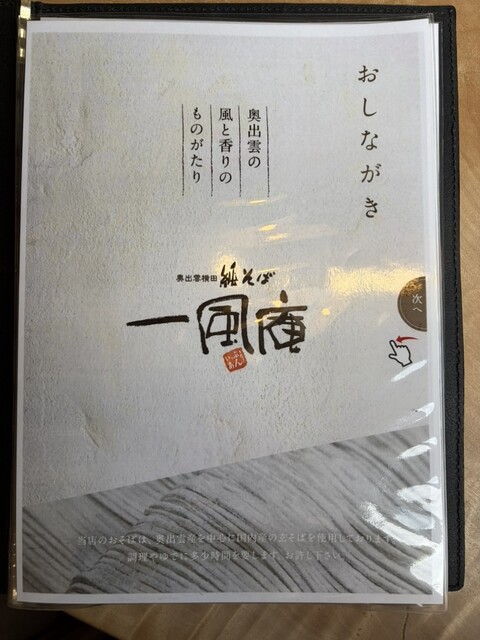 おしながき
奥出雲の
風と香りの
ものがたり
奥出雲横田
そば
一風庵
次へ
当店のおそばは、奥出雲産を中心に国内産の玄そばを使用しております。
調理やゆでに多少時間を要します。お許し下さい。